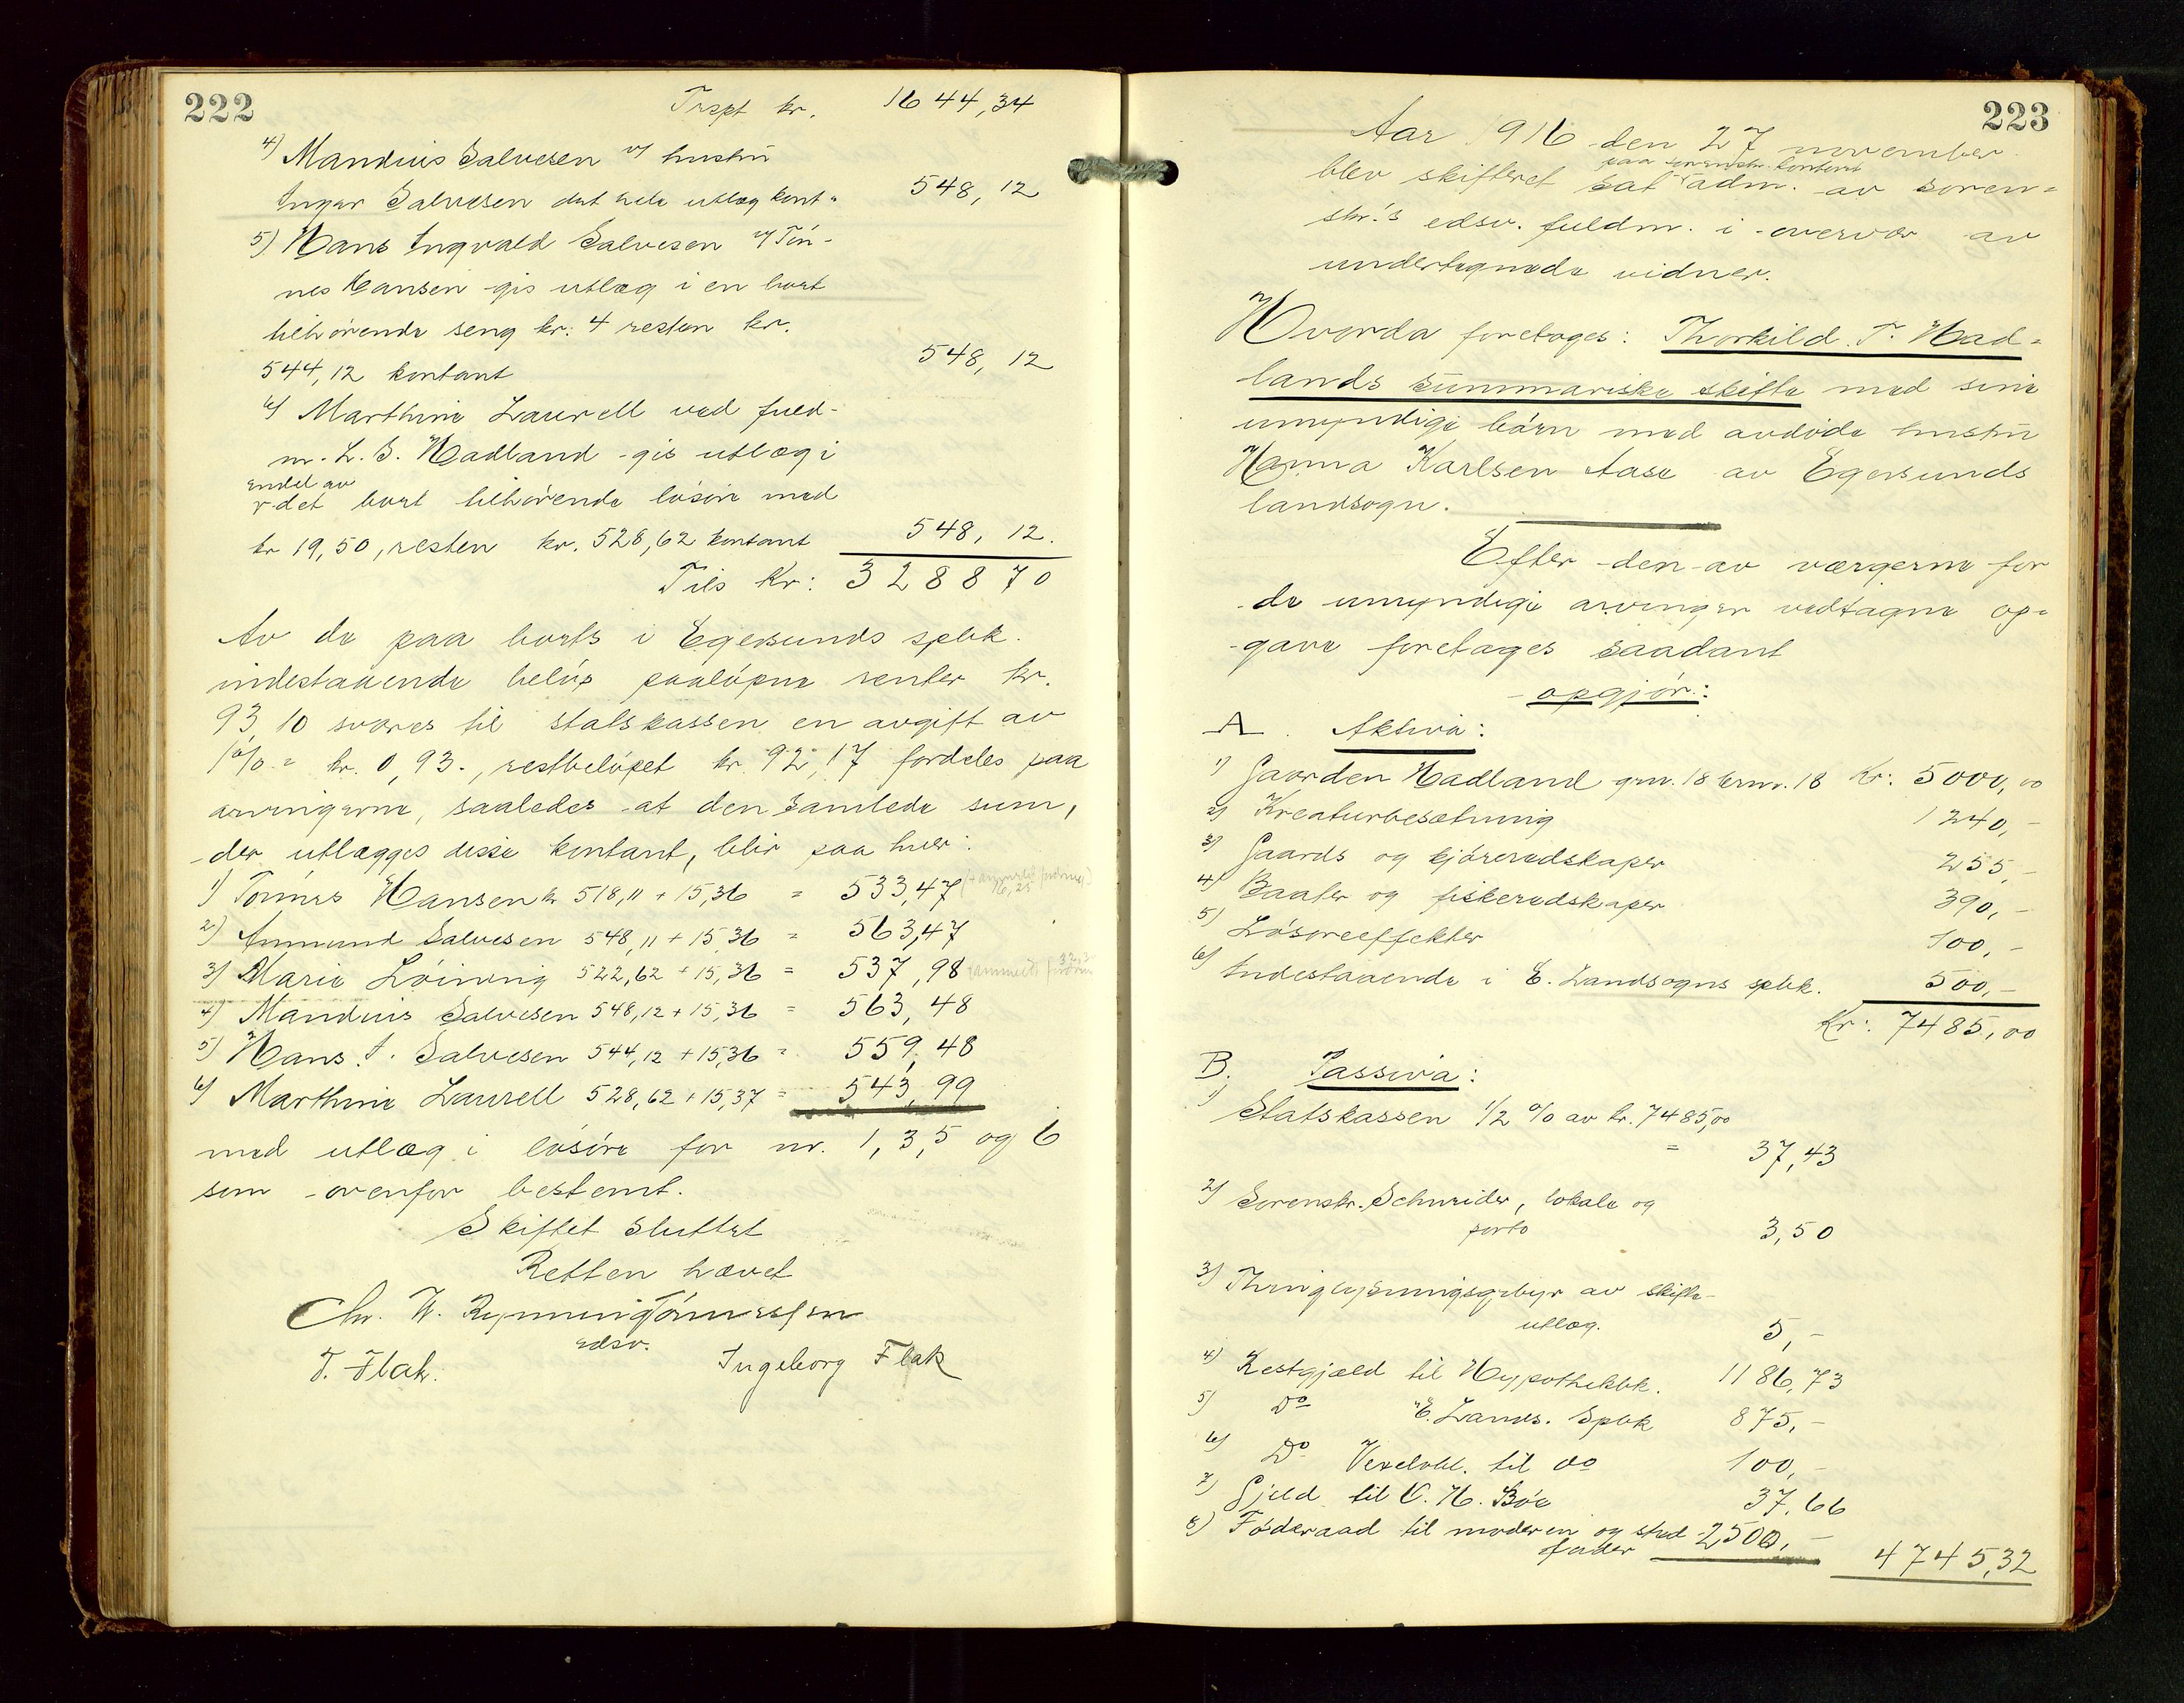 222
Trspt kr. 1644,34
4) Mandius Salvesen v/ hustru
Inger Salvesen det hele utlæg kont. 548,12
5) Hans Ingvald Salvesen v/ Tön-
nes Hansen gis utlæg i en boet
tilhörende seng kr. 4 resten kr.
544,12 kontant 548,12
6) Marthine Laurell ved fuld-
m. L. S. Hadland gis utlæg i
endel av
det boet tilhörende lösöre med
kr 19,50, resten kr. 528,62 kontant 548,12.
Tils Kr: 328870
Av de paa boets i Egersunds spbk.
indestaaende belöp paalöpne renter kr.
93,10 svares til statskassen en avgift av
1% = kr. 0,93., restbelöpet kr. 92,17 fordeles paa
arvingerne, saaledes at den samlede sum,
der utlægges disse kontant, blir paa hver:
1) Tönnes Hansen kr 518,11 + 15,36 = 533,47
2) Ammund Salvesen 548,11 + 15,36 = 563,47
3) Marie Löining 522,62 + 15,36 = 537,98
4) Mandius Salvesen 548,12 + 15,36 = 563,48
5) Hans I. Salvesen 544,12 + 15,36 = 559,48
6) Marthine Laurell 528,62 + 15,37 = 543,99
med utlæg i lösöre for nr. 1, 3, 5 og 6
som ovenfor bestemt.
Skiftet sluttet
Retten hævet
Chr. W. Rynning Tönnesen
edsv.
T. Flak. Ingeborg Flak
223
Aar 1916 den 27 november
paa sorenskr. kontoret
blev skifteret sat adm. av soren-
skr.'s edsv. fuldm. i overvær av
undertegnede vidner.
Hvorda foretoges: Thorkild T. Had-
lands summariske skifte med sine
umyndige börn med avdöde hustru
Hanna Karlsen Aase av Egersunds
landsogn.
Efter den av værgerne for
de umyndige arvinger vedtagne op-
gave foretages saadant
opgjör:
A. Aktiva:
1) Gaarden Hadland gnr. 18 brnr. 18 Kr: 5000,00
2) Kreaturbesætning 1240,-
3) Gaards og kjöreredskaper 255,-
4) Baater og fiskeredskaper 390,-
5) Lösöreeffekter 100,-
6) Indestaaende i E. Landsogns spbk. 500,-
Kr: 7485,00
B. Passiva:
1) Statskassen 1/2 % av kr. 7485,00
= 37,43
2) Sorenskr. Schneider, lokale og
porto 3,50
3) Thinglysningsgebyr av skifte-
utlæg. 5,-
4) Restgjæld til Hypothekbk. 1186,73
5) Do E. Lands. Spbk 875,-
6) Do Vexelobl. til do 100,-
7) Gjeld til C. H. Böe 37,66
8) Föderaad til moderen og sted- 2500,-
fader 4745,32